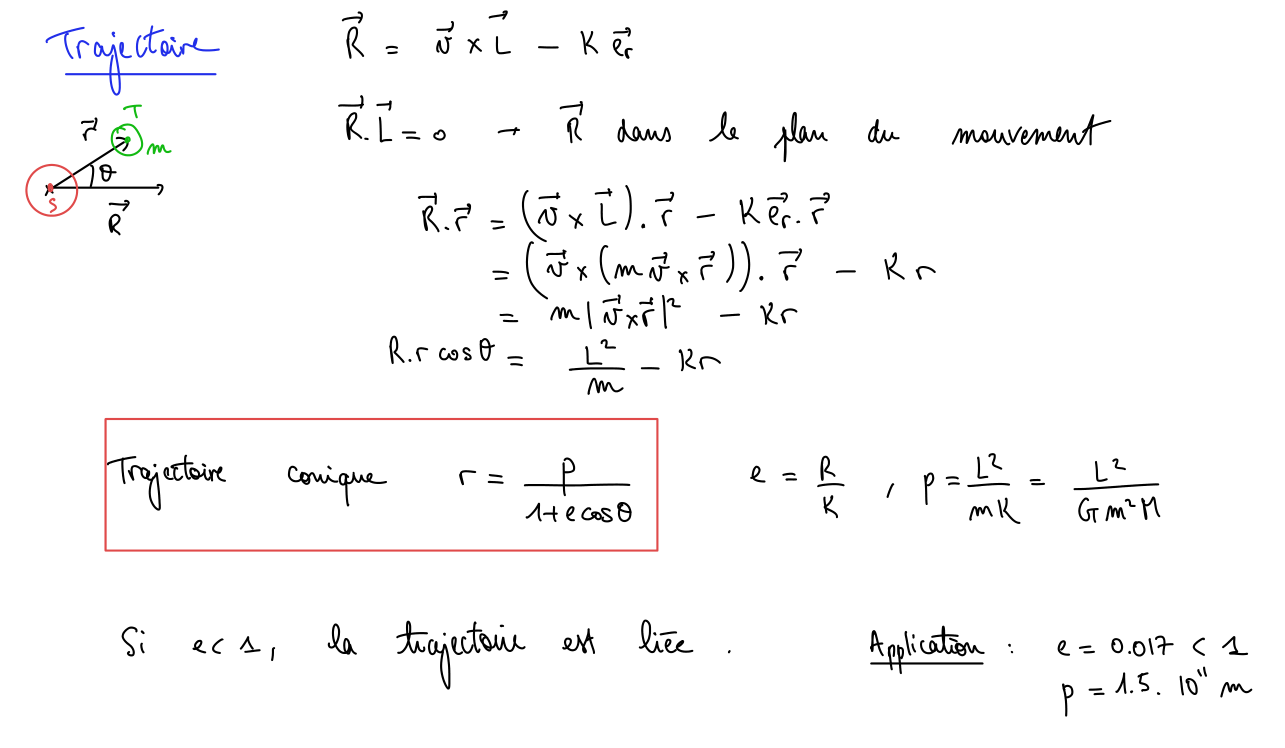 Trajectoire
R⃗ = v⃗ × L⃗ − K e⃗ᵣ
R⃗.L⃗ = 0 → R⃗ dans le plan du mouvement
T
r⃗
m
θ
S
R⃗
R⃗.r⃗ = (v⃗ × L⃗). r⃗ − K e⃗ᵣ. r⃗
= (v⃗ × (m v⃗ × r⃗)). r⃗ − K r
= m |v⃗ × r⃗|² − Kr
R.r cos θ = L²/m − Kr
Trajectoire conique r = p/(1+e cos θ)
e = R/K , p = L²/(mK) = L²/(G m² M)
Si e < 1, la trajectoire est liée .
Application : e = 0.017 < 1
p = 1.5. 10¹¹ m